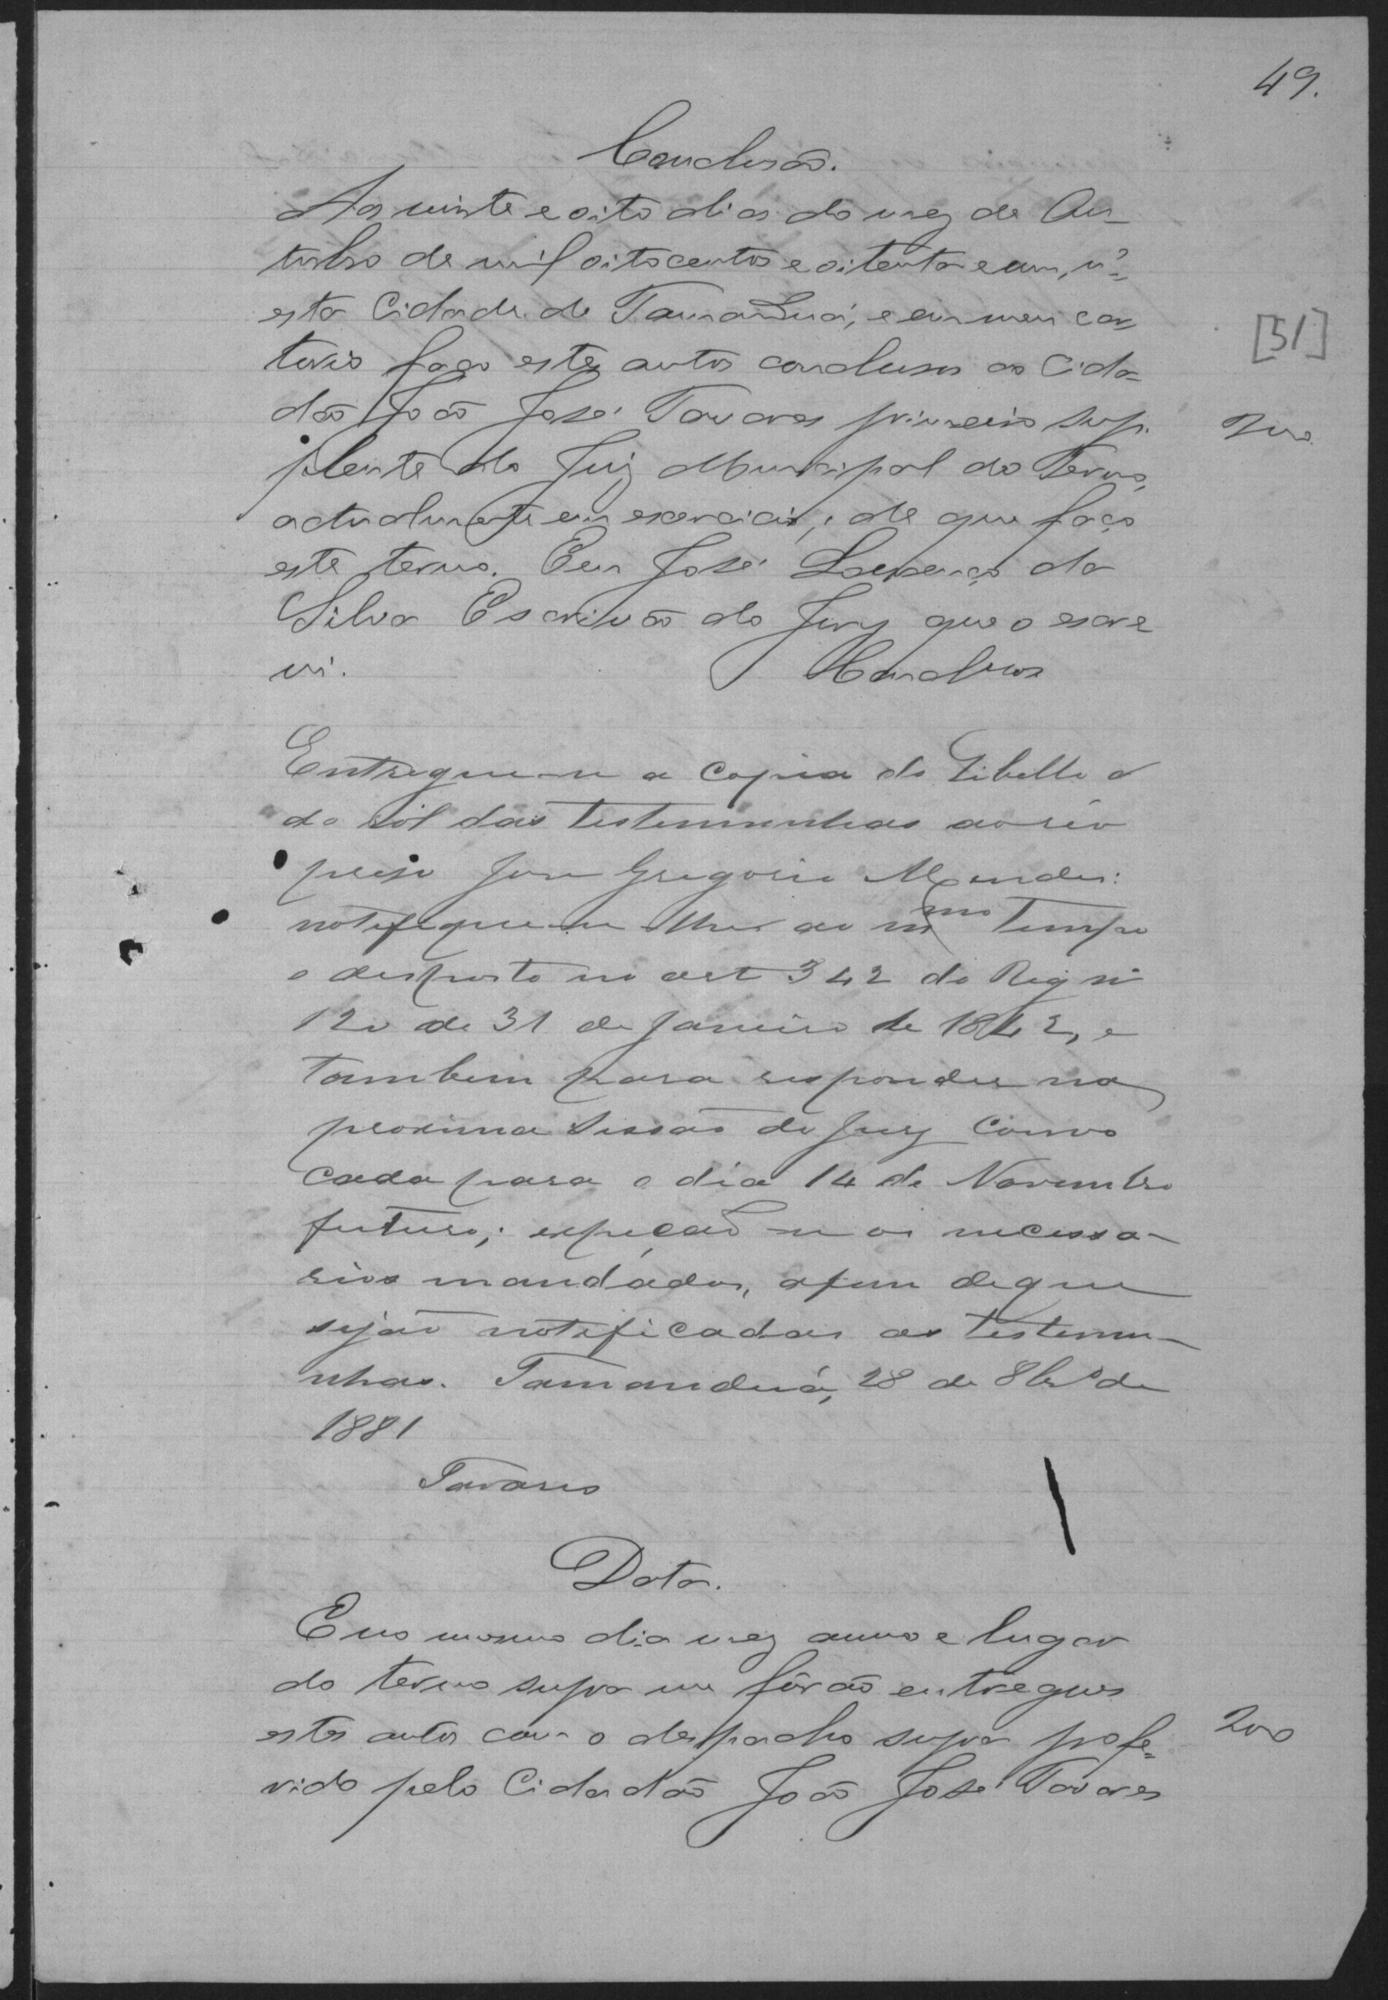 49.
Conclusão.
Aos vinte e oito dias do mez de Ou-
tubro de mil oitocentos e oitenta e um, n'-
esta Cidade de Tamanduá, e em meu car
torio faço estes autos conclusos ao Cida-
dão João José Tavares primeiro sup-
plente do Juiz Municipal do Termo,
actualmente em exercicio; de que faço
este termo. Eu José Lourenço da
Silva Escrivão do Jury que o escre
vi. Conclusos
[51]
200
Entregue-se a copia do Libello e
do rol das testemunhas ao réo
preso José Gregorio Mendes:
notifique-se lhe ao mmo tempo
o desposto no art 342 do Reg nº
120 de 31 de Janeiro de 1842, e
tambem para responder na
proxima sessão do Jury convo
cada para o dia 14 de Novembro
futuro; expeção-se os necessa-
rios mandados, afim de que
sejão notificadas as testemu-
nhas. Tamanduá, 28 de 8brº de
1881
Tavares
Data.
E no mesmo dia mez anno e lugar
do termo supra me fôrão entregues
estes autos com o despacho supra profe-
rido pelo Cidadão João José Tavares
200